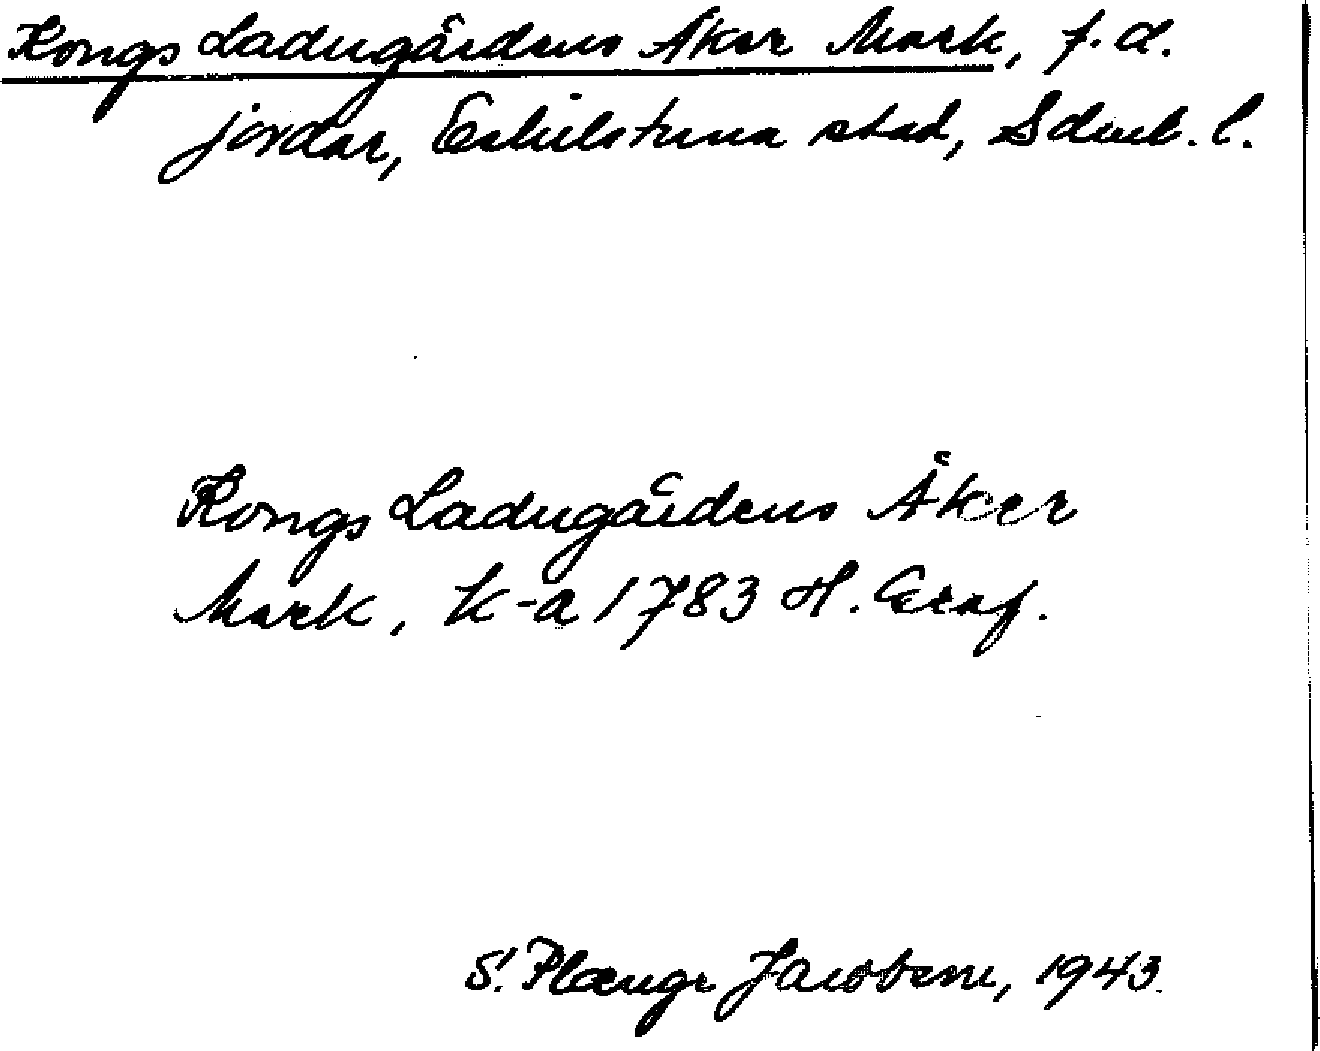 Kongs Ladugårdens Åker Mark, f.d.
jordar, Eskilstuna stad, Södml. l.
Kongs Ladugårdens Åker
Mark, k-a 1783 H. Graf.
S. Plænge Jacobsson, 1943.